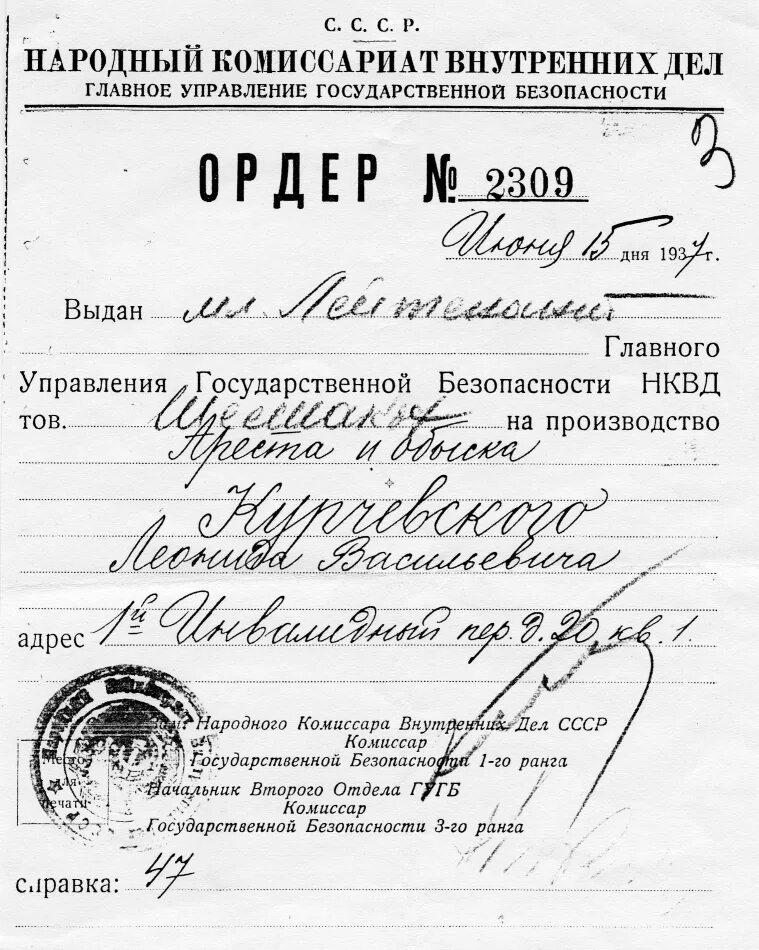 С. С. С. Р.
НАРОДНЫЙ КОМИССАРИАТ ВНУТРЕННИХ ДЕЛ
ГЛАВНОЕ УПРАВЛЕНИЕ ГОСУДАРСТВЕННОЙ БЕЗОПАСНОСТИ
3
ОРДЕР № 2309
Июня 15 дня 1937 г.
Выдан мл. Лейтенанту
Главного
Управления Государственной Безопасности НКВД
тов. на производство
Ареста и обыска
Курчевского
Леонида Васильевича
адрес 1й Инвалидный пер. д. 20 кв. 1.
Зам. Народного Комиссара Внутренних Дел СССР
Комиссар
Государственной Безопасности 1-го ранга
Место
для
печати
Начальник Второго Отдела ГУГБ
Комиссар
Государственной Безопасности 3-го ранга
справка: 47